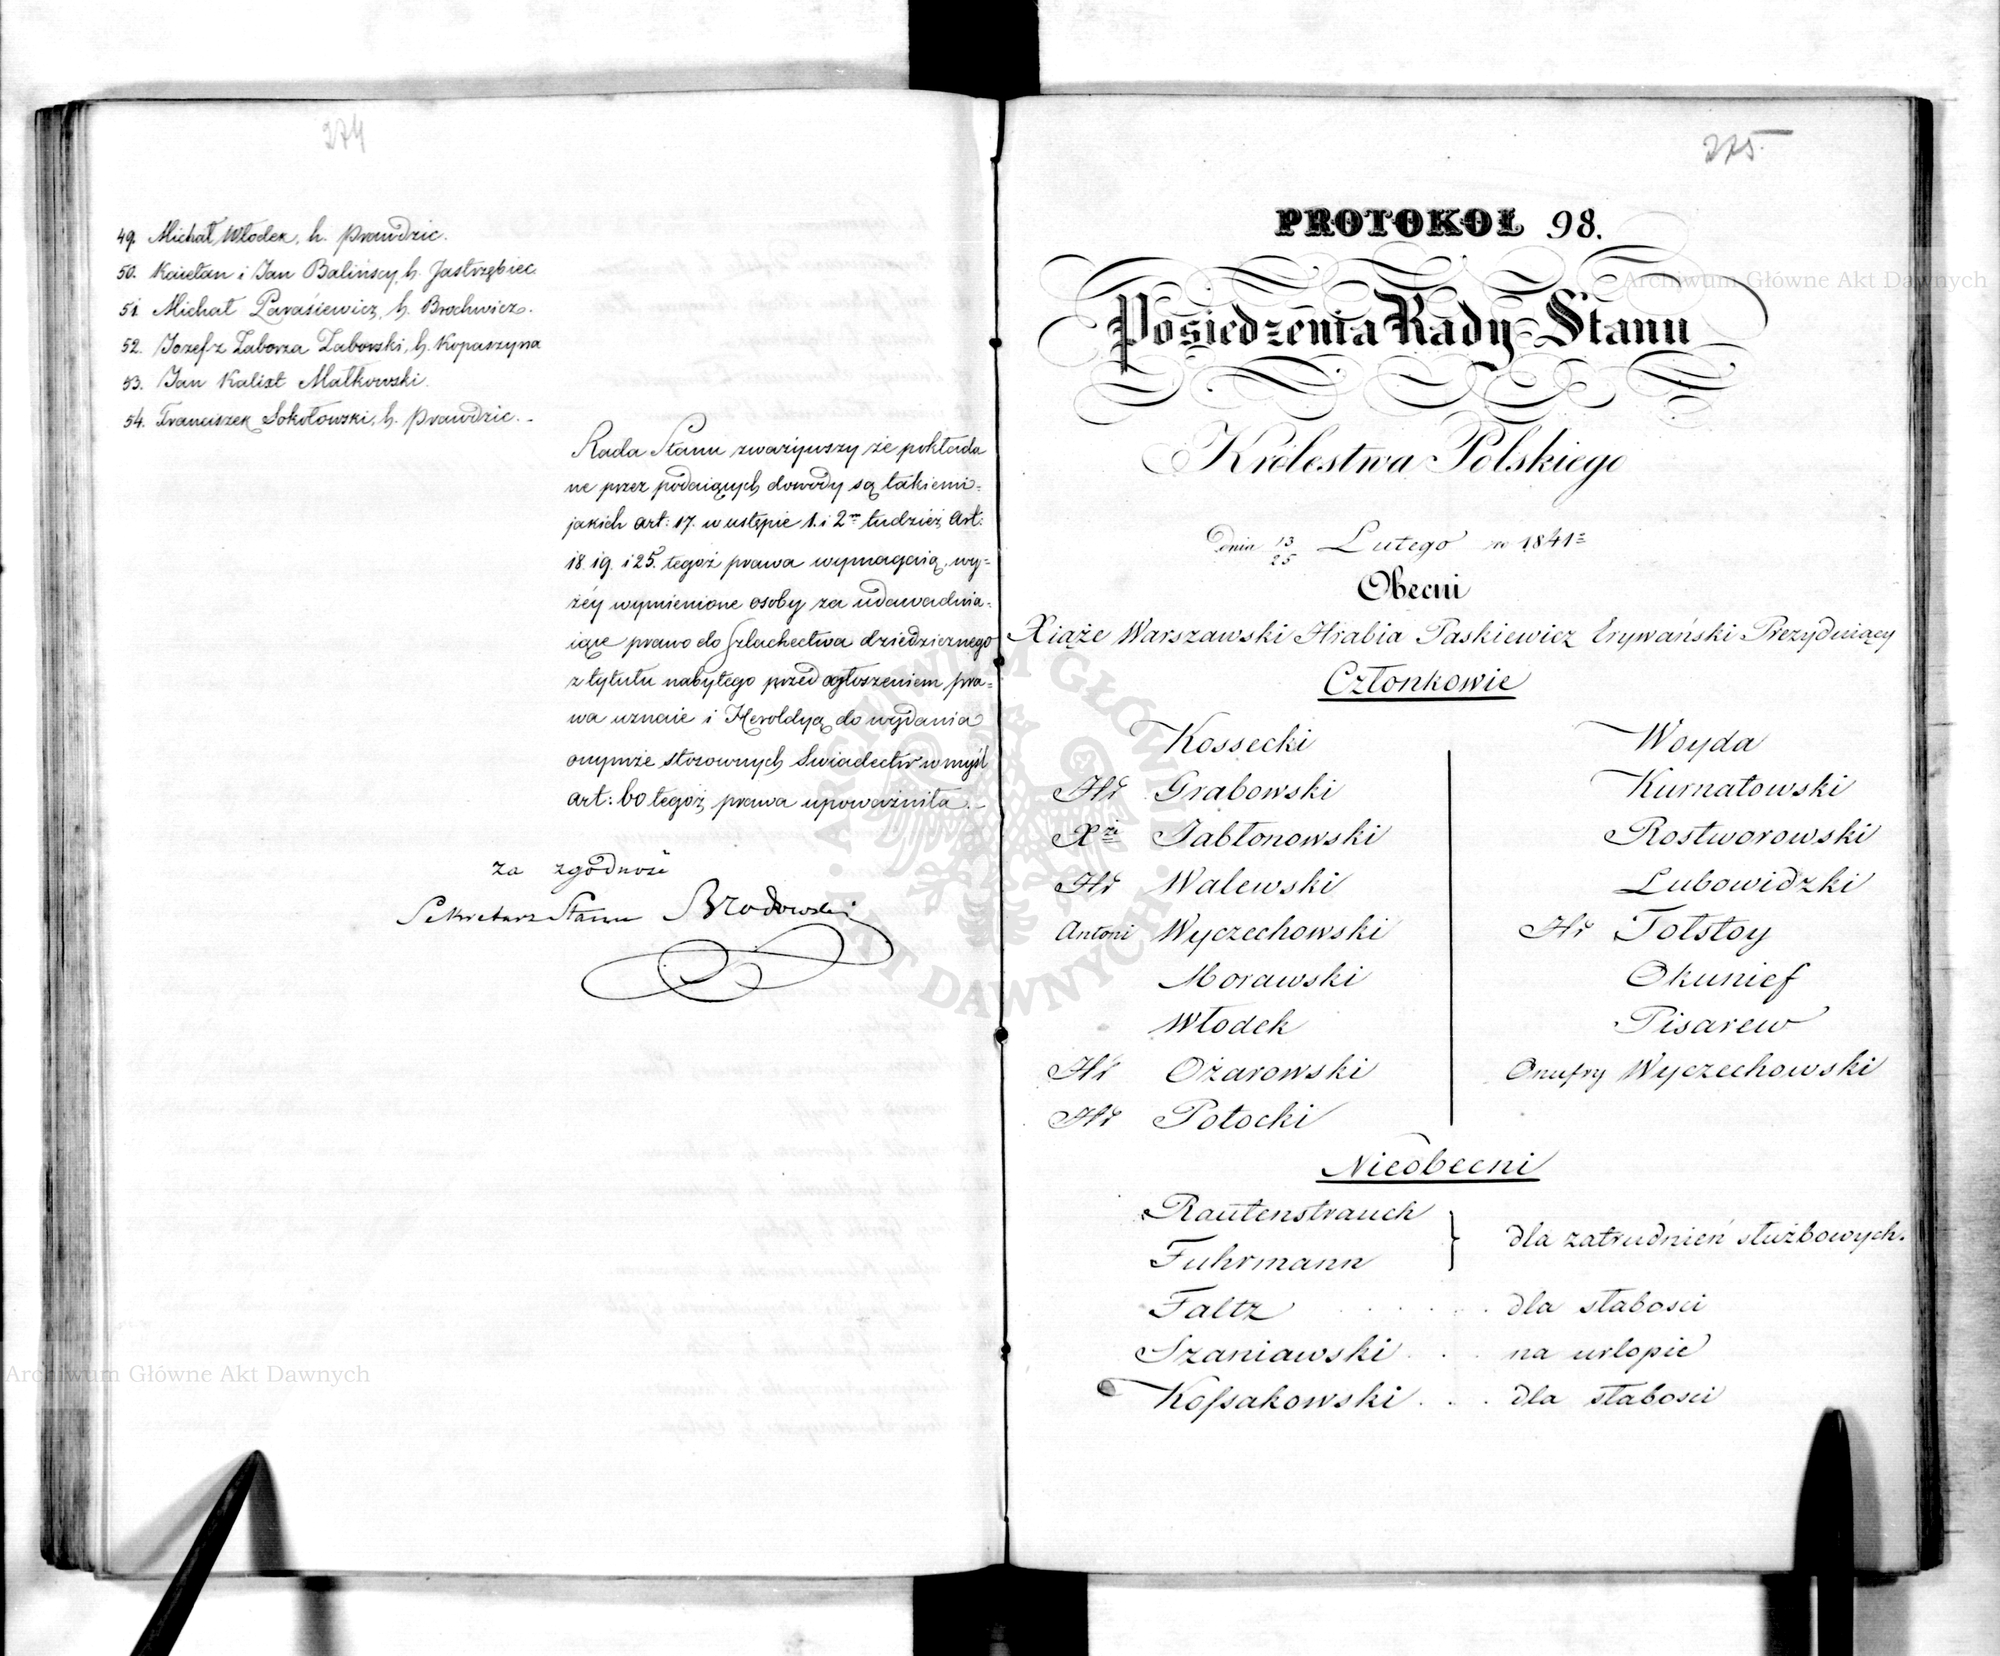 274
49. Michał Włodek, h. Prawdzic.
50. Kaietan i Jan Balińscy, h. Jastrzębiec
51. Michał Parasiewicz, h. Brochwicz.
52. Jozef z Zaborza Zaborski, h. Kopaszyna
53. Jan Kalixt Małkowski.
54. Franciszek Sokołowski, h. Prawdzic. -
Rada Stanu zważywszy że pokłada
ne przez podaiących dowody są takiemi-
jakich art: 17. w ustępie 1. i 2m tudzież Art:
18. 19. i 25. tegoż prawa wymagaią, wy-
żéy wymienione osoby za udawadnia-
iące prawo do Szlachectwa dziedzicznego
z tytułu nabytego przed ogłoszeniem pra-
wa uznaie i Heroldyą do wydania
onymże stosownych Swiadectw w myśl
art: 60 tegoż prawa upoważniła. -
za zgodność
Sekretarz Stanu Brodowski
275.
PROTOKOŁ 98.
Posiedzenia Rady Stanu
Królestwa Polskiego
Dnia 13/25 Lutego 1841
Obecni
Xiąże Warszawski Hrabia Paskiewicz Erywański Prezyduiący
Członkowie
Kossecki Woyda
Hr Grabowski Kurnatowski
Xże Jabłonowski Rostworowski
Hr Walewski Lubowidzki
Antoni Wyczechowski Hr Tołstoy
Morawski Okunief
Włodek Pisarew
Hr Ożarowski Onufry Wyczechowski
Hr Potocki
Nieobecni
Rautenstrauch
Fuhrmann } dla zatrudnień służbowych.
Faltz . . . . . dla słabosci
Szaniawski . . . na urlopie
Kossakowski . . . dla słabosci
Archiwum Główne Akt Dawnych
Archiwum Główne Akt Dawnych
ARCHIWUM GŁÓWNE AKT DAWNYCH